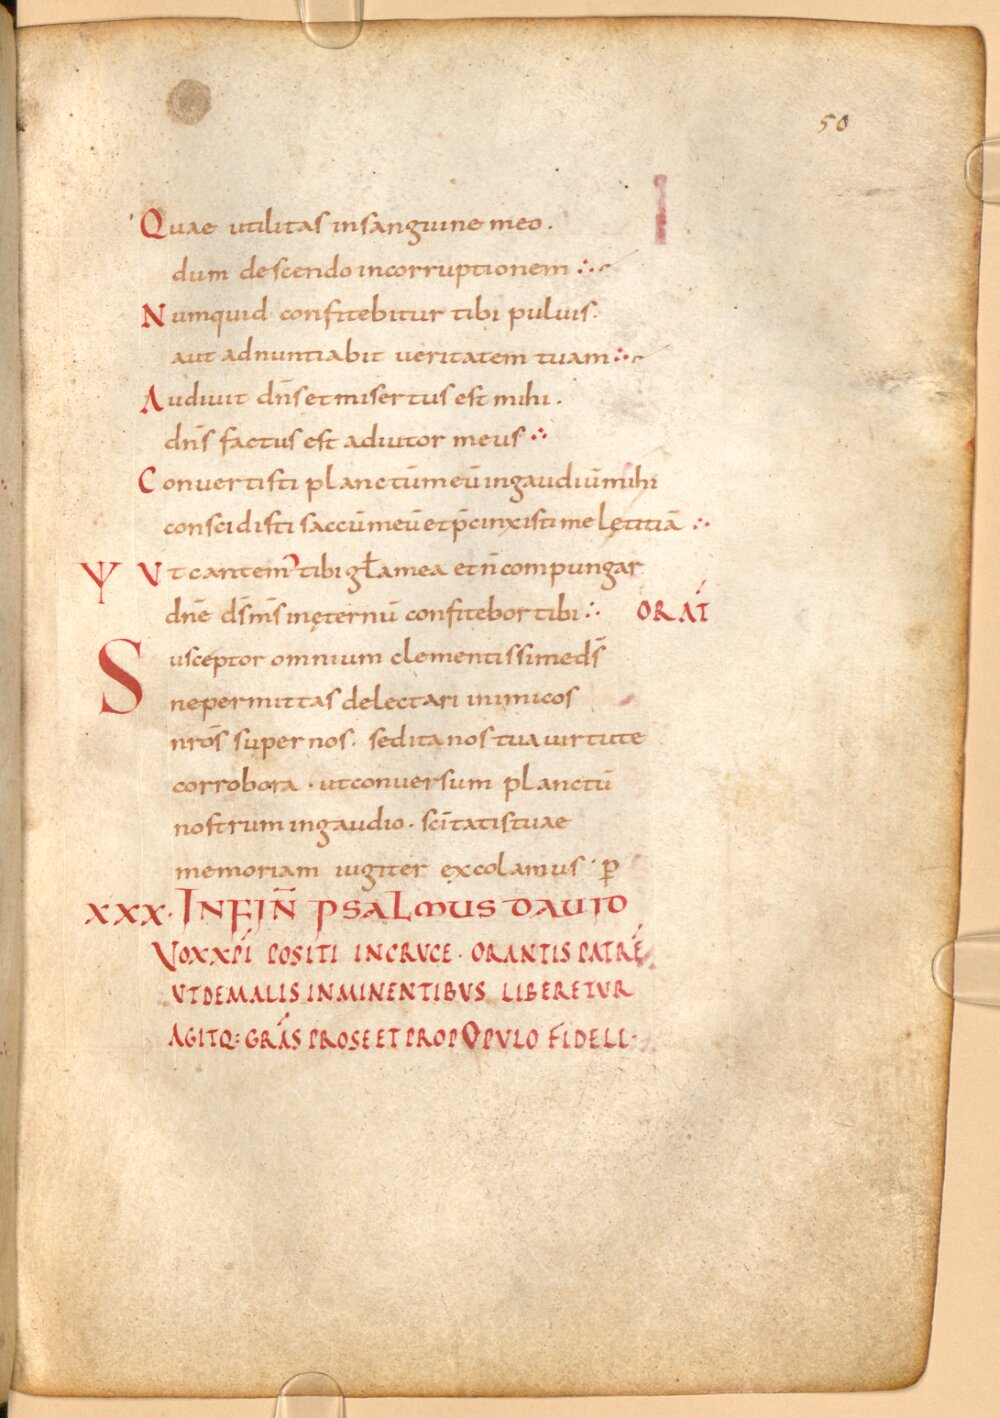 50
Quae utilitas insanguine meo.
dum descendo incorruptionem ∴
Numquid confitebitur tibi puluis.
aut adnuntiabit ueritatem tuam ∴
Audiuit dn̄s et misertus est mihi.
dn̄s factus est adiutor meus ∴
Conuertisti planctūmeū ingaudiūmihi
conscidisti saccūmeū et p̄cinxisti me lętitiā ∴
Ψ Vt cantem tibi gƚa mea et n̄ compungar
dn̄e ds̄ ms̄ inęternū confitebor tibi ∴ ORAT̄
Susceptor omnium clementissime ds̄
nepermittas delectari inimicos
nrōs super nos. sedita nos tua uirtute
corrobora · ut conuersum planctū
nostrum ingaudio · scītatis tuae
memoriam iugiter excolamus · ꝑ
XXX · INFIN̄ PSALMUS DAUID
VOX XPI POSITI INCRUCE · ORANTIS PATRĒ
UT DEMALIS INMINENTIBUS LIBERETUR
AGITQ: GRĀS PROSE ET PROPOPULO FIDELI ·